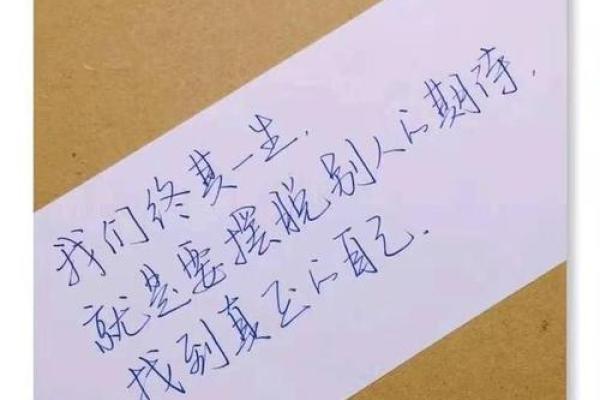 我们终其一生,
就是要摆脱别人的期待,
找到真正的自己.